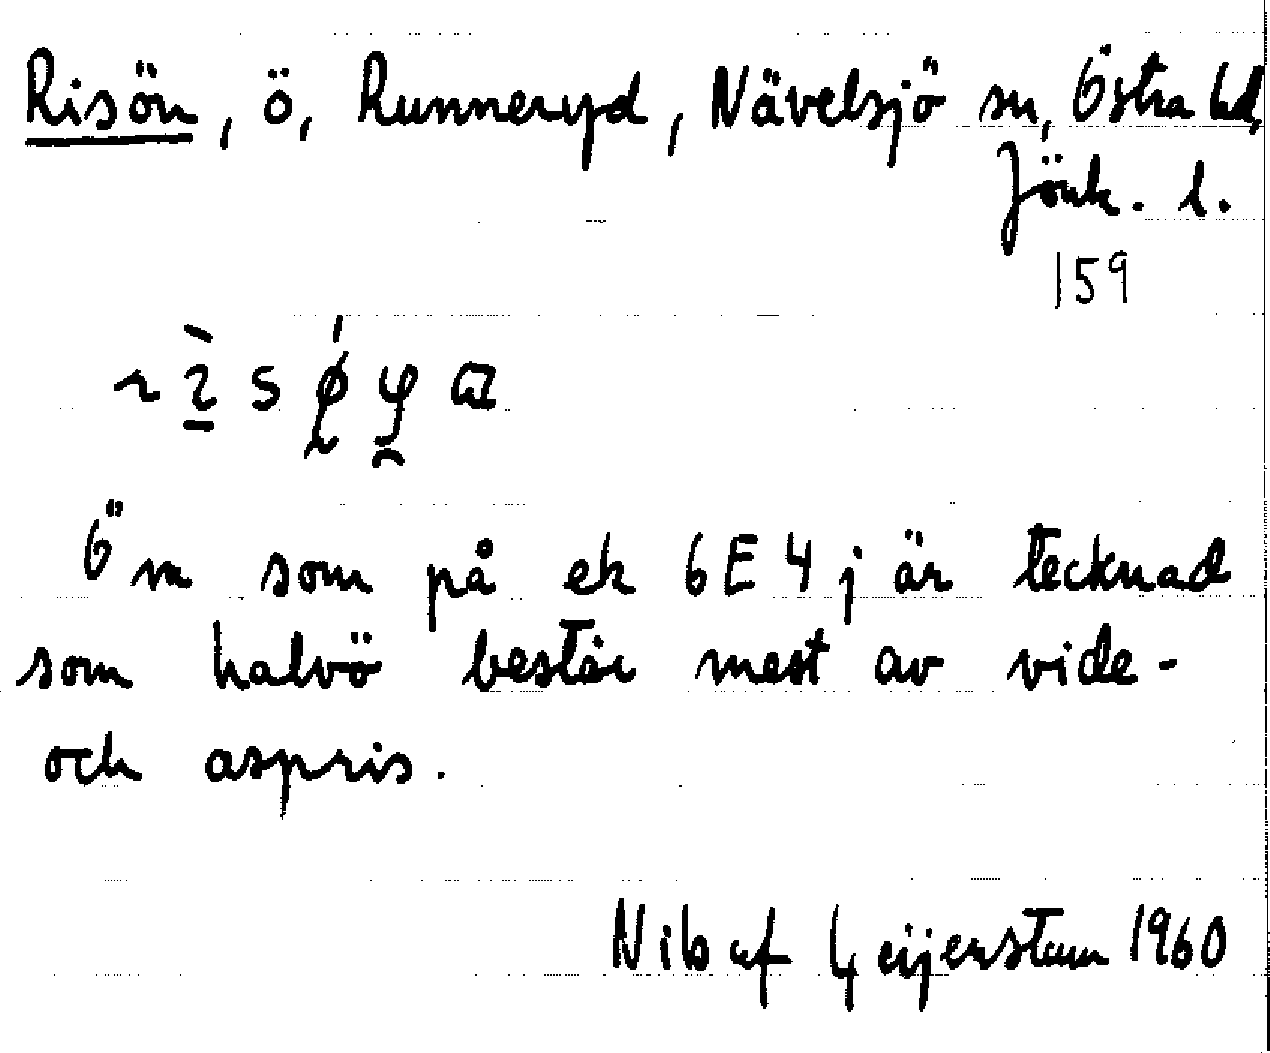 Risön, ö, Runneryd, Nävelsjö sn, Östra hd,
Jönk. l.
159
Ön som på ek 6E4j är tecknad
som halvö består mest av vide-
och aspris.
Nils af Geijerstam 1960